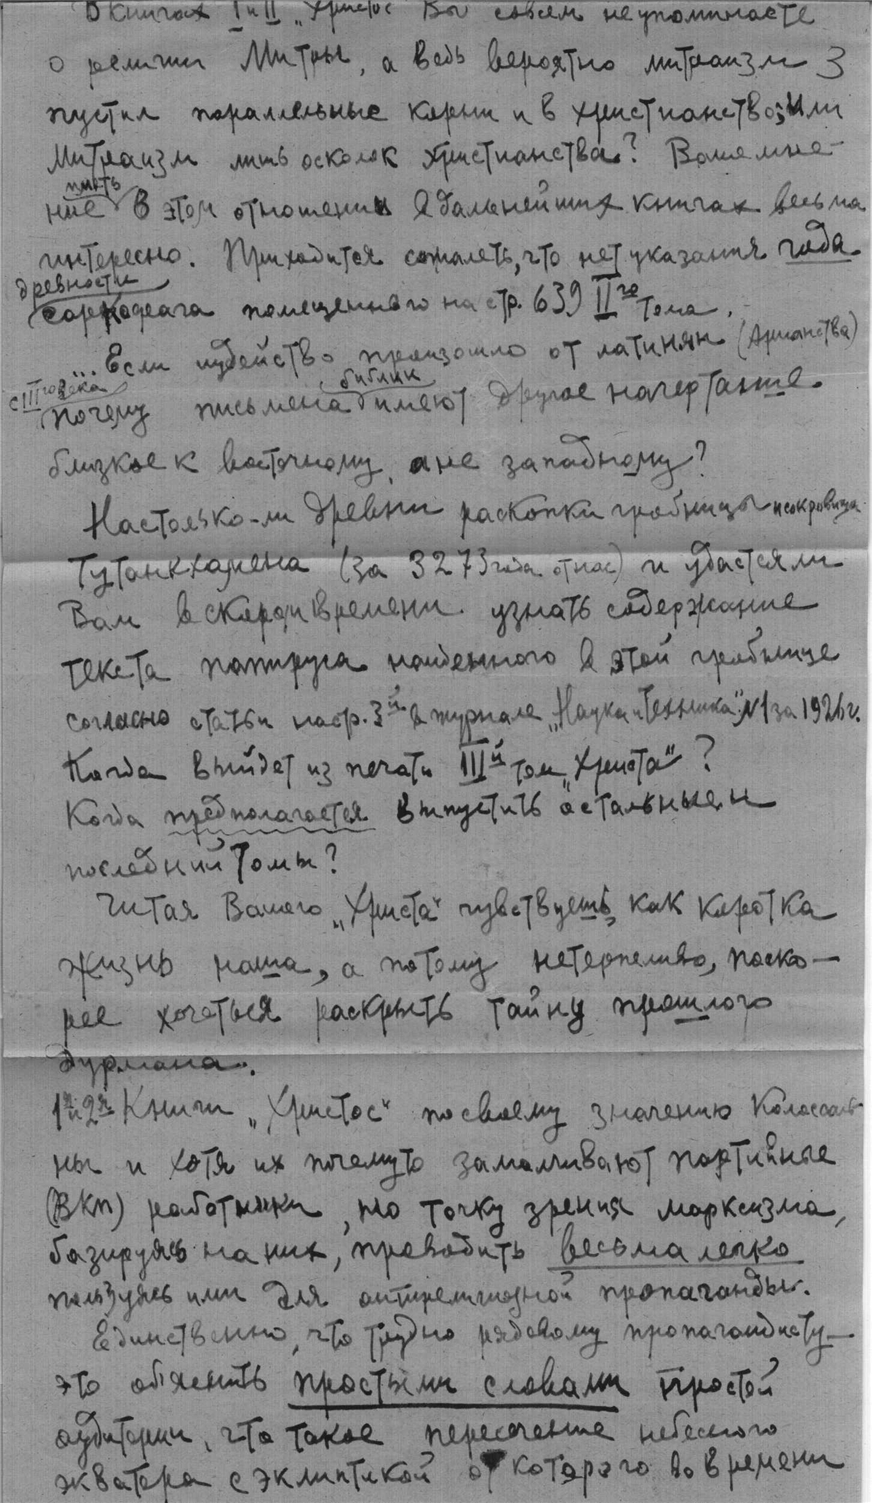 В книгах I и II „Христос" Вы совсем не упоминаете
о религии Митры, а ведь вероятно митраизм
пустил параллельные корни и в христианство; или
Митраизм лишь осколок христианства? Ваше мне-
иметь
ние в этом отношении в дальнейших книгах весьма
интересно. Приходится сожалеть, что нет указания года
древности
саркофага помещенного на стр. 639 II го тома.
... Если иудейство произошло от латинян (Арианства)
с III го века библии
почему письмена имеют другое начертание
близкое к восточному, а не западному?
Настолько-ли древни раскопки гробницы и сокровища
Тутанкхамена (за 3273 года от нас) и удастся ли
Вам в скором времени узнать содержание
текста папируса найденного в этой гробнице
согласно статьи на стр. 3й в журнале „Наука и техника" №1 за 1926 г.
Когда выйдет из печати III й том „Христа"?
Когда предполагается выпустить остальные и
последний томы?
Читая Вашего „Христа" чувствуешь, как коротка
жизнь наша, а потому нетерпеливо, поско-
рее хочеться раскрыть тайну прошлого
дурмана.
1я и 2я Книги „Христос" по своему значению колоссаль
ны и хотя их почемуто замалчивают партийные
(ВКП) работники, но точку зрения марксизма,
базируясь на них, проводить весьма легко
пользуясь ими для антирелигиозной пропаганды.
Единственно, что трудно рядовому пропагандисту —
это обяснить простыми словами простой
аудитории, что такое пересечение небесного
экватора с эклиптикой от которого во времени